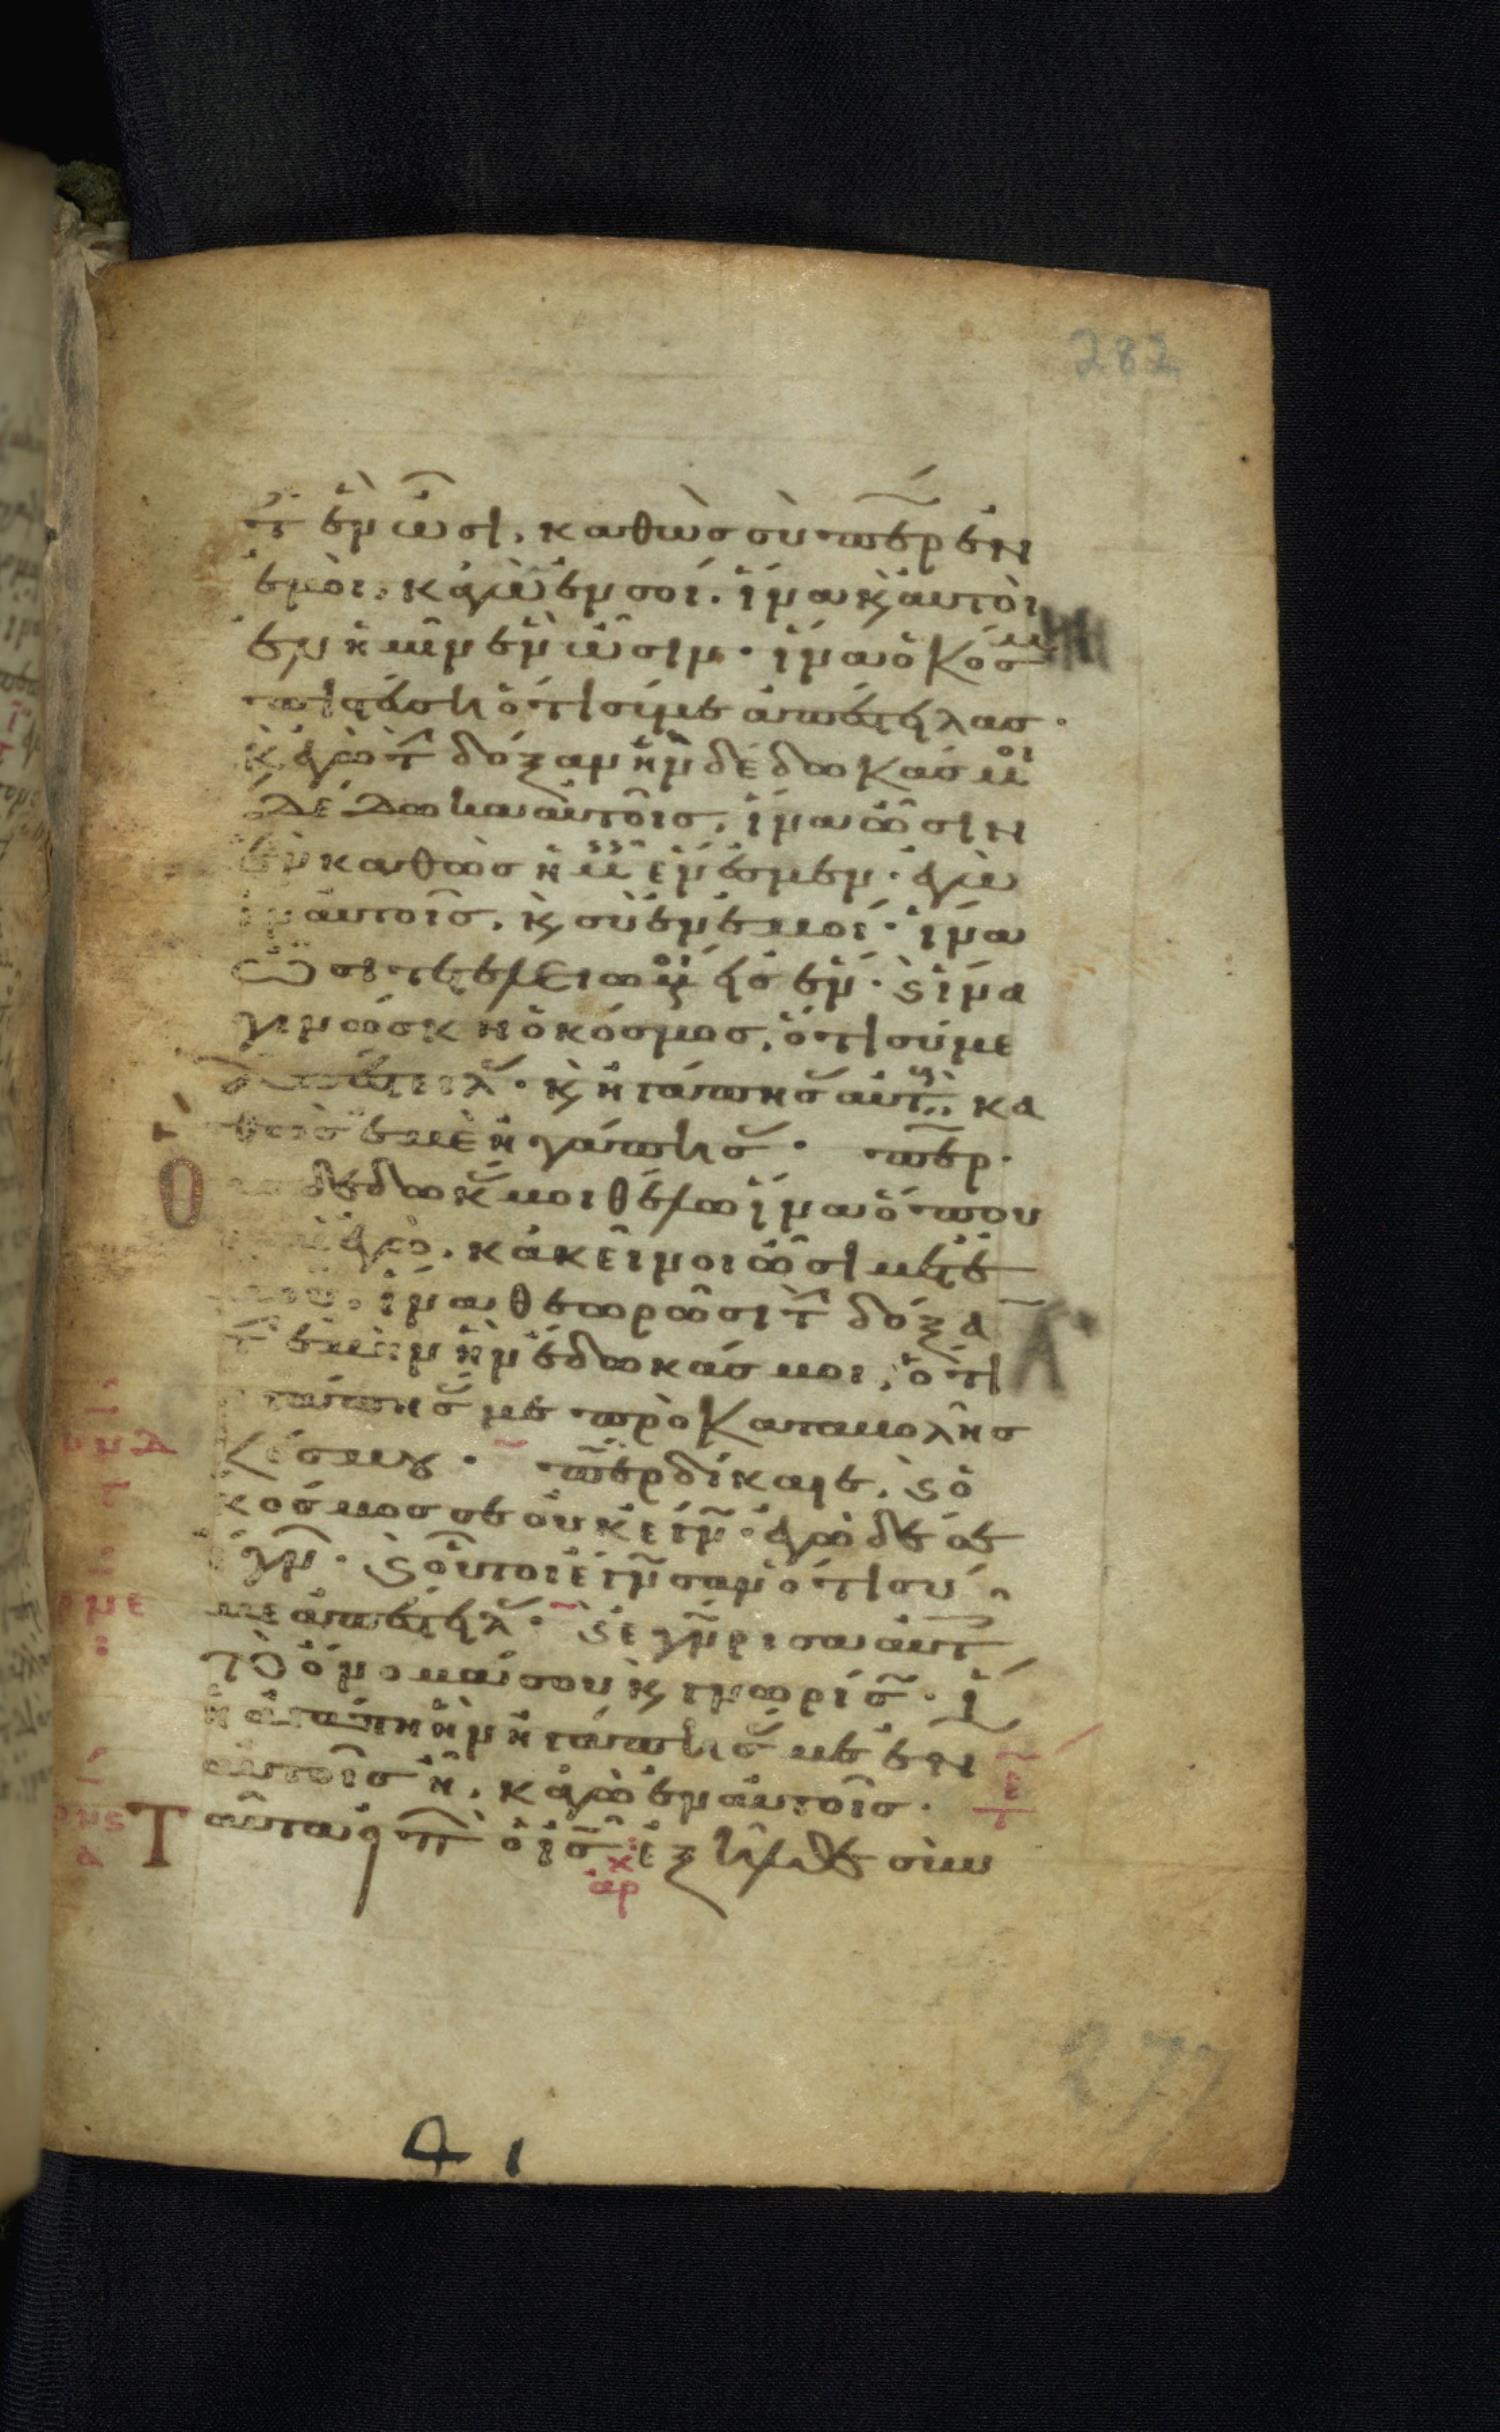 282
τ ἓν ὦσι, καθὼς σὺ περ ἐν
ἐμοὶ, κἀγὼ ἐν σοί. ἵνα κ αὐτοὶ
ἐν ἡμῖν ἓν ὦσιν. ἵνα ὁ κόσμ
πιστεύση ὅτι σύ με ἀπέστειλας.
κ ἐγὼ τ δόξαν ἣν δέδωκάς μοι
δέδωκα αὐτοῖς, ἵνα ὦσιν
ἓν καθὼς ἡμ ἕν ἐσμεν. ἐγὼ
ἐν αὐτοῖς, κ σὺ ἐν ἐμοί. ἵνα
ὦσι τετελειωμ εἰς ἕν. κ ἵνα
γινώσκη ὁ κόσμος, ὅτι σύ με
ἀπέστειλ. κ ἠγάπησ αὐτ κα
θὼς ἐμὲ ἠγάπησ. περ.
δέδωκ μοι θέλω ἵνα ὅπου
ἐγὼ, κἀκεῖνοι ὦσι μετ ἐ
μοῦ, ἵνα θεωρῶσι τ δόξα
τ ἐμὴν ἣν ἔδωκάς μοι, ὅτι
ἠγάπησ με πρὸ καταβολῆς
κόσμου. περ δίκαιε, κ ὁ
κόσμος σε οὐκ ἔγν. ἐγὼ δέ σε
ἔγν. κ οὗτοι ἔγνωσαν ὅτι σύ
με ἀπέστειλ. κ ἐγνώρισα αὐτ
τὸ ὄνομά σου κ γνωρίσ. ἵ
ἡ ἀγάπη ἣν ἠγάπησ με ἐν
αὐτοῖς ἦ, κἀγὼ ἐν αὐτοῖς.
Ταῦτα εἰπ ὁ ις ἐξῆλθε σὺν
αρ
277
41